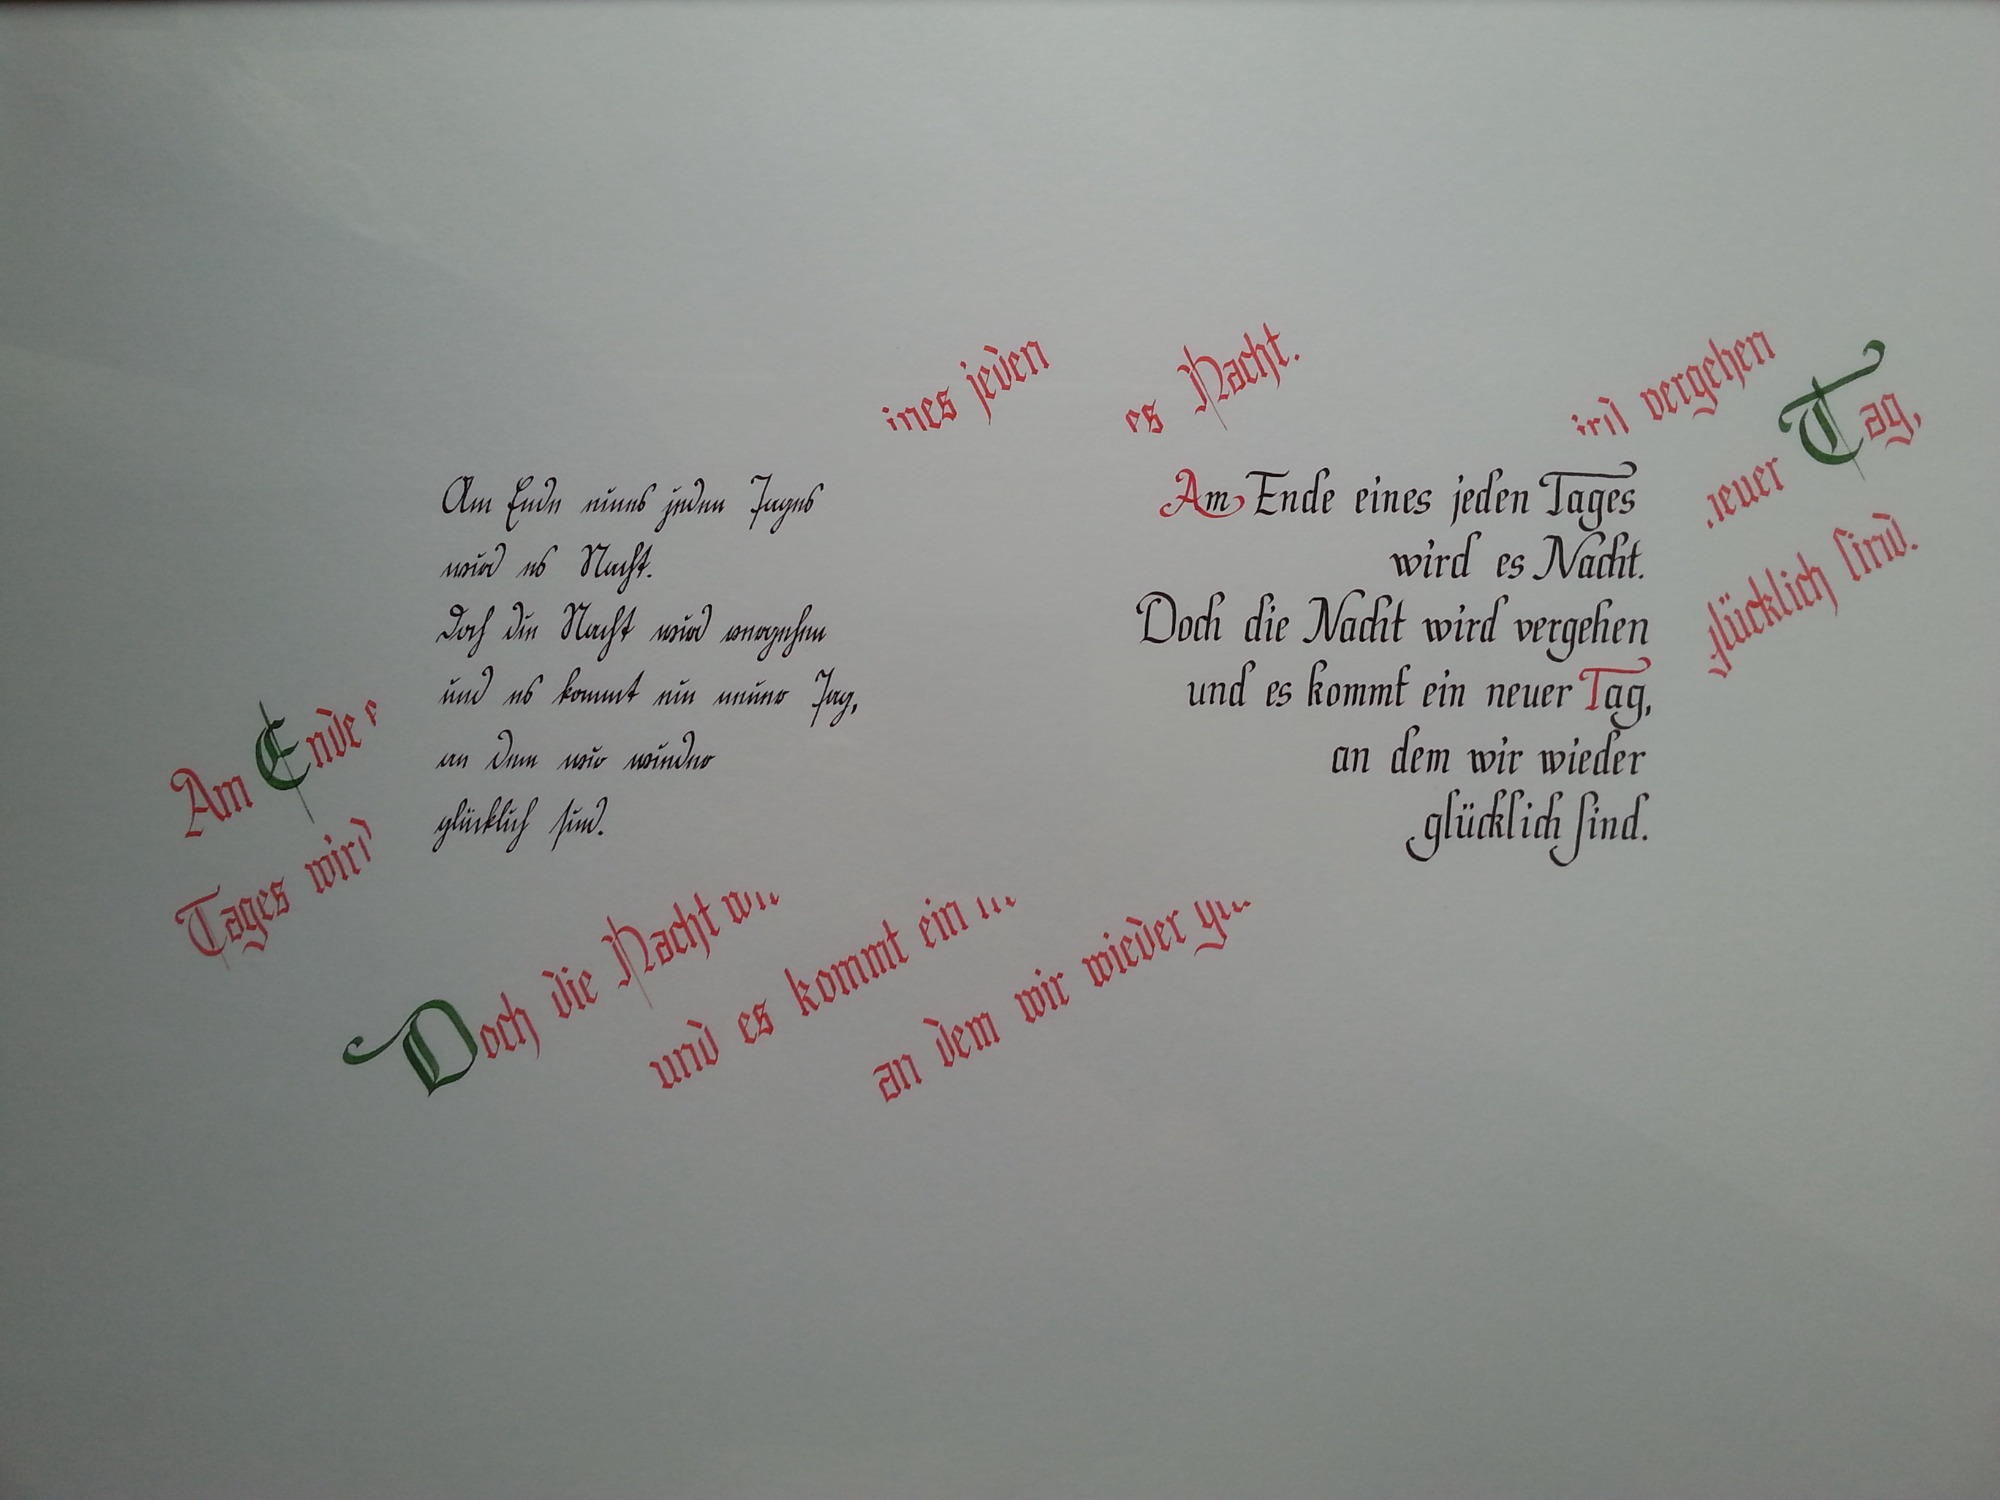 Am Ende eines jeden Tages
wird es Nacht.
Doch die Nacht wird vergehen
und es kommt ein neuer Tag,
an dem wir wieder
glücklich sind.
Am Ende eines jeden Tages
wird es Nacht.
Doch die Nacht wird vergehen
und es kommt ein neuer Tag,
an dem wir wieder
glücklich sind.
Am Ende e
ines jeden
Tages wird
es Nacht.
Doch die Nacht wi
ird vergehen
und es kommt ein n
neuer Tag,
an dem wir wieder gl
glücklich sind.